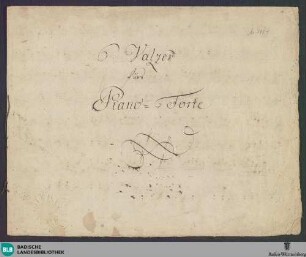 6 Valzer
fürs
Piano = Forte
BLB
BADISCHE
LANDESBIBLIOTHEK
Baden-Württemberg